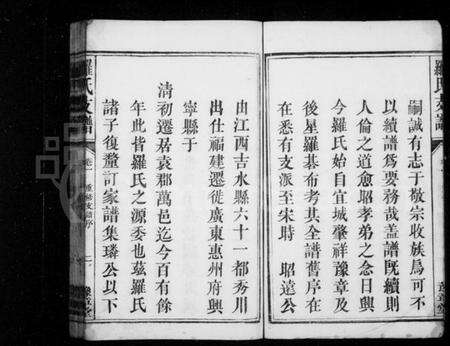 嗣誠有志于敬宗收族焉可不
以續譜爲要務哉蓋譜既續則
人倫之道愈昭孝弟之念日興
今羅氏始自宜城肇祥豫章及
後星羅棊布考其全譜舊序在
在悉有支派至宋時 昭遠公
由江西吉水縣六十一都秀川
出仕福建遷徙廣東惠州府興
寧縣于
清初遷居袁郡萬邑迄今百有餘
年此皆羅氏之源委也茲羅氏
諸子復釐訂家譜集璘公以下
羅氏支譜
卷一 重修支譜序
二
豫章堂